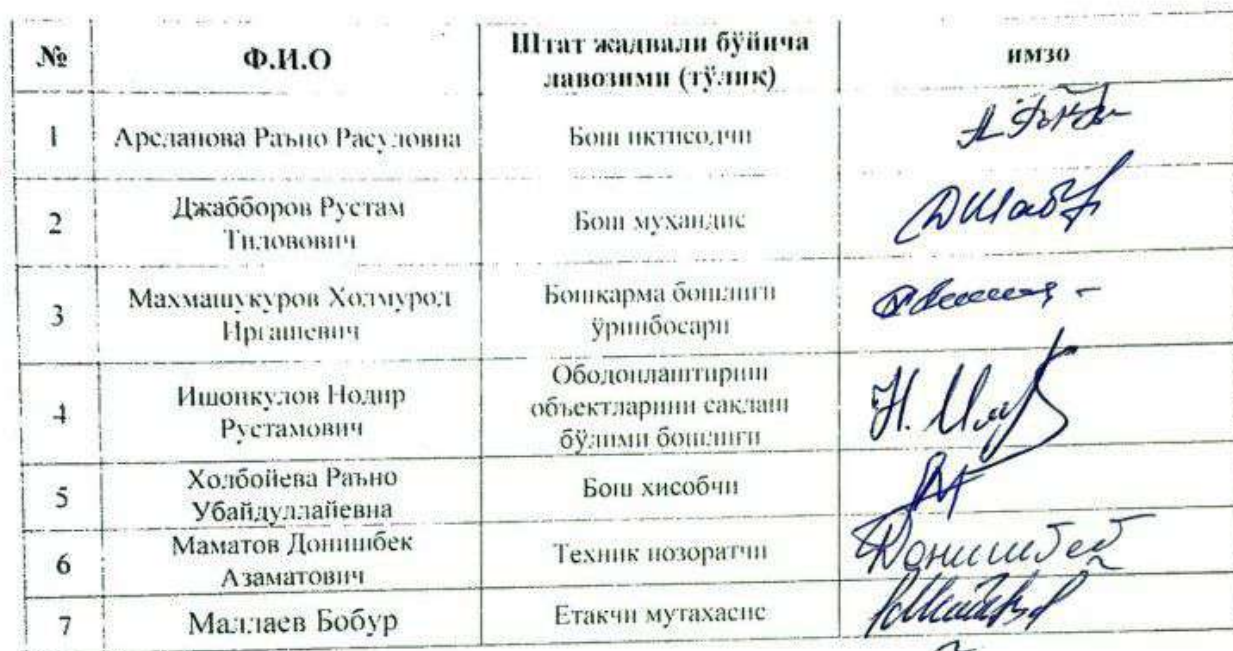 № Ф.И.О Штат жадвали бўйича лавозими (тўлиқ) имзо
1 Арсланова Раъно Расуловна Бош иктисодчи
2 Джабборов Рустам Тиловович Бош муҳандис
3 Махмашукуров Холмурод Иргашевич Бошкарма бошлиги ўринбосари
4 Ишонкулов Нодир Рустамович Ободонлаштириш объектларини саклаш бўлими бошлиги Н.
5 Холбойева Раъно Убайдуллайевна Бош хисобчи
6 Маматов Донишбек Азаматович Техник нозоратчи Донишбек
7 Маллаев Бобур Етакчи мутахасис